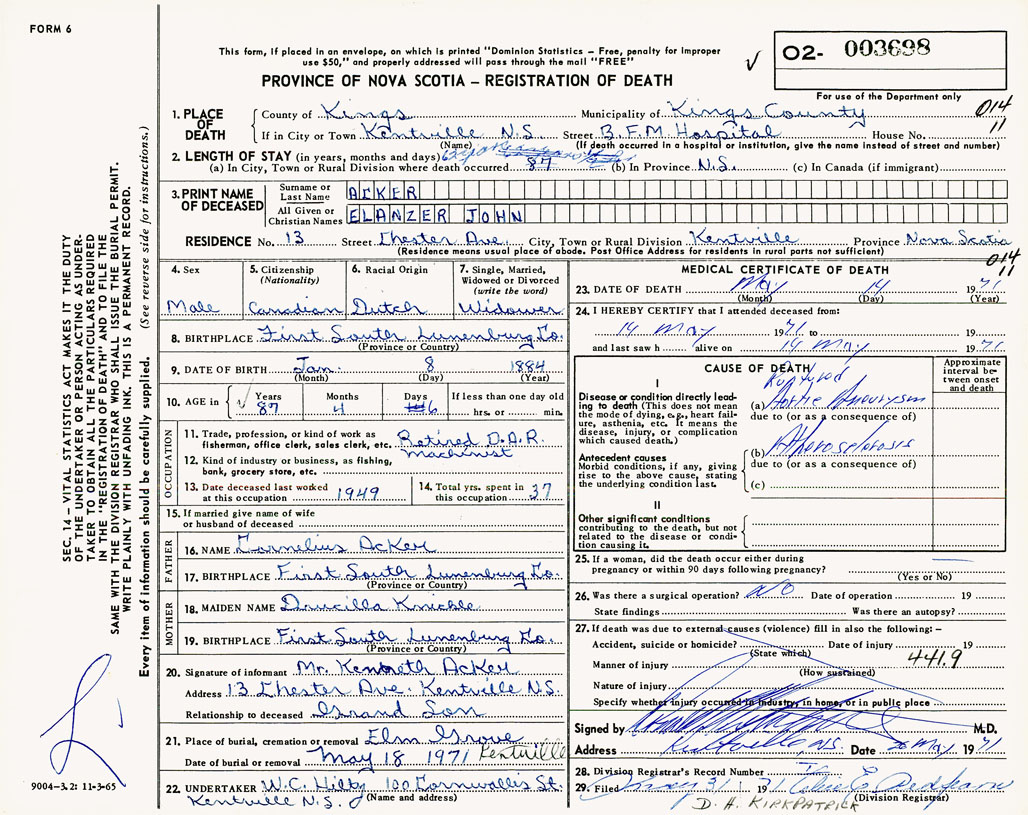 FORM 6
This form, if placed in an envelope, on which is printed "Dominion Statistics – Free, penalty for improper
use $50," and properly addressed will pass through the mail "FREE"
PROVINCE OF NOVA SCOTIA – REGISTRATION OF DEATH
✓
O2- 003698
For use of the Department only
1. PLACE OF DEATH
County of Kings Municipality of Kings County 014
If in City or Town Kentville N.S. Street B.F.M. Hospital House No. 11
(Name) (If death occurred in a hospital or institution, give the name instead of street and number)
2. LENGTH OF STAY (in years, months and days)
(a) In City, Town or Rural Division where death occurred 87 (b) In Province N.S. (c) In Canada (if immigrant)
3. PRINT NAME OF DECEASED
Surname or Last Name ACKER
All Given or Christian Names ELANZER JOHN
RESIDENCE No. 13 Street Chester Ave. City, Town or Rural Division Kentville Province Nova Scotia
(Residence means usual place of abode. Post Office Address for residents in rural parts not sufficient)
014
11
4. Sex
Male
5. Citizenship (Nationality)
Canadian
6. Racial Origin
Dutch
7. Single, Married, Widowed or Divorced (write the word)
Widower
8. BIRTHPLACE First South Lunenburg Co.
(Province or Country)
9. DATE OF BIRTH Jan. 8 1884
(Month) (Day) (Year)
10. AGE in Years Months Days If less than one day old
87 4 6 hrs. or min.
OCCUPATION
11. Trade, profession, or kind of work as fisherman, office clerk, sales clerk, etc. Retired D.A.R.
Machinist
12. Kind of industry or business, as fishing, bank, grocery store, etc.
13. Date deceased last worked at this occupation 1949
14. Total yrs. spent in this occupation 37
15. If married give name of wife or husband of deceased
FATHER
16. NAME Cornelius Acker
17. BIRTHPLACE First South Lunenburg Co.
(Province or Country)
MOTHER
18. MAIDEN NAME Drucilla Knickle
19. BIRTHPLACE First South Lunenburg Co.
(Province or Country)
20. Signature of informant Mr. Kenneth Acker
Address 13 Chester Ave. Kentville N.S.
Relationship to deceased Grand Son
21. Place of burial, cremation or removal Elm Grove
Kentville
Date of burial or removal May 18 1971
22. UNDERTAKER W.C. Hilby 100 Cornwallis St.
Kentville N.S. (Name and address)
MEDICAL CERTIFICATE OF DEATH
23. DATE OF DEATH May 14 1971
(Month) (Day) (Year)
24. I HEREBY CERTIFY that I attended deceased from:
14 May 1971 to 19
and last saw h alive on 14 May 1971
CAUSE OF DEATH
Approximate interval between onset and death
I
Disease or condition directly leading to death (This does not mean the mode of dying, e.g., heart failure, asthenia, etc. It means the disease, injury, or complication which caused death.)
Ruptured
(a) Aortic Aneurysm
due to (or as a consequence of)
Antecedent causes
Morbid conditions, if any, giving rise to the above cause, stating the underlying condition last.
(b) Atherosclerosis
due to (or as a consequence of)
(c)
II
Other significant conditions
contributing to the death, but not related to the disease or condition causing it.
25. If a woman, did the death occur either during pregnancy or within 90 days following pregnancy?
(Yes or No)
26. Was there a surgical operation? No Date of operation 19
State findings Was there an autopsy?
27. If death was due to external causes (violence) fill in also the following: –
Accident, suicide or homicide? Date of injury 19
(State which)
441.9
Manner of injury
(How sustained)
Nature of injury
Specify whether injury occurred in industry, in home, or in public place
Signed by M.D.
Address Kentville N.S. Date May 1971
28. Division Registrar's Record Number
29. Filed 31 1971
(Division Registrar)
D. H. KIRKPATRICK
SEC. 14 – VITAL STATISTICS ACT MAKES IT THE DUTY
OF THE UNDERTAKER OR PERSON ACTING AS UNDER-
TAKER TO OBTAIN ALL THE PARTICULARS REQUIRED
IN THE "REGISTRATION OF DEATH" AND TO FILE THE
SAME WITH THE DIVISION REGISTRAR WHO SHALL ISSUE THE BURIAL PERMIT.
WRITE PLAINLY WITH UNFADING INK. THIS IS A PERMANENT RECORD.
Every item of information should be carefully supplied. (See reverse side for instructions.)
9004–3.2: 11-3-65